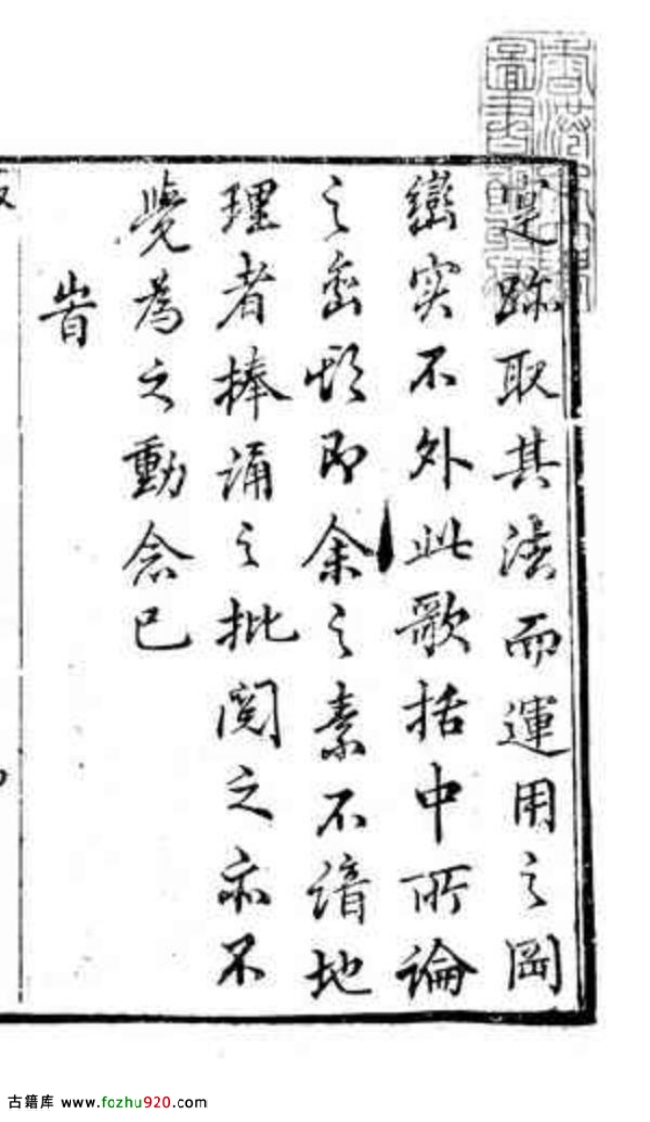 踪取其法而運用之岡
巒实不外此歌括中所論
之巒頭即余之素不諳地
理者捧誦之批閱之亦不
覺為之動念已
旹
古籍库 www.fozhu920.com